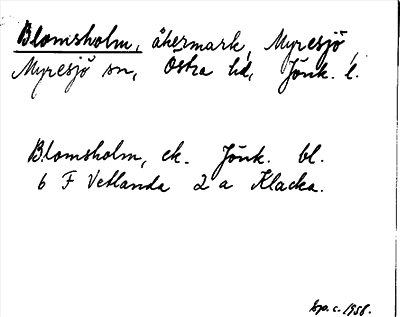 Blomsholm, åkermark, Myresjö,
Myresjö sn, Östra hd, Jönk. l.
Blomsholm, ek. Jönk. bl.
6 F Vetlanda 2 a Klacka.
c. 1958.